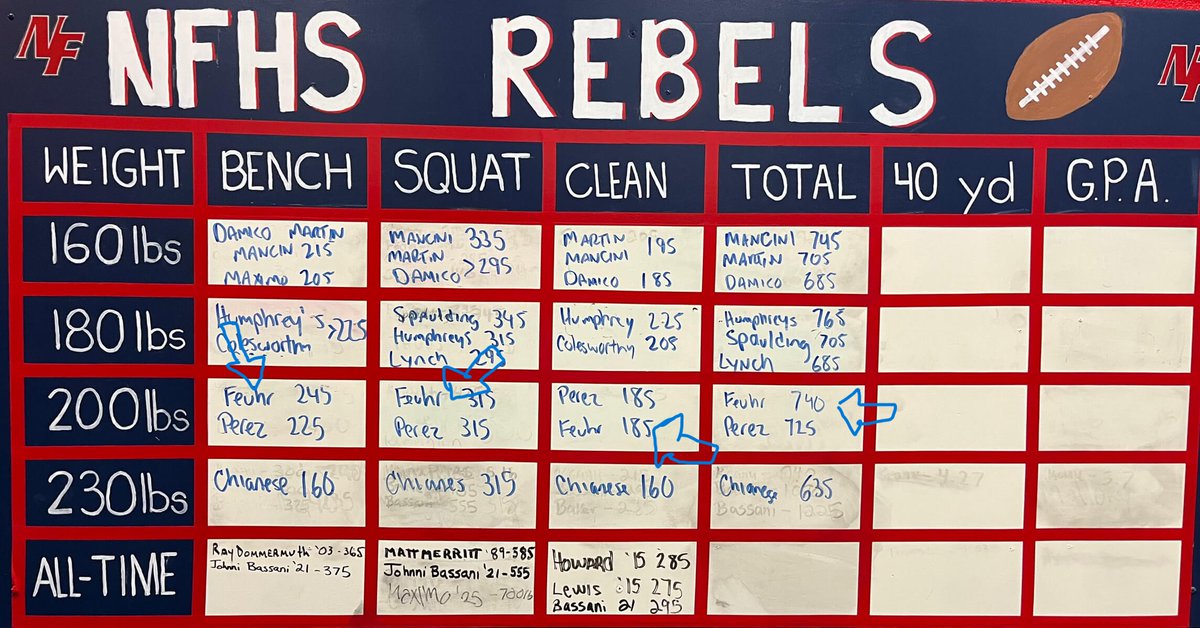 NF NFHS REBELS NF
WEIGHT BENCH SQUAT CLEAN TOTAL 40 yd G.P.A.
160lbs
DAMICO MARTIN
MANCIN 215
MAXIMO 205
MANCINI 335
MARTIN
DAMICO >295
MARTIN 195
MANCINI
DAMICO 185
MANCINI 745
MARTIN 705
DAMICO 685
180lbs
Humphrey's >225
Colesworthy
Spaulding 345
Humphreys 315
Lynch 295
Humphrey 225
Colesworthy 205
Humphreys 765
Spaulding 705
Lynch 685
200lbs
Feuhr 245
Perez 225
Feuhr 315
Perez 315
Perez 185
Feuhr 185
Feuhr 740
Perez 725
230lbs
Chianese 160
Chianes 315
Bassani - 555
Chianese 160
Chianese 635
Bassani - 1225
ALL-TIME
Ray Dommermuth '03 - 365
Johnni Bassani '21 - 375
MATT MERRITT '89 - 585
Johnni Bassani '21 - 555
Maximo '25 - 700lb
Howard '15 285
Lewis '15 275
Bassani 21 295